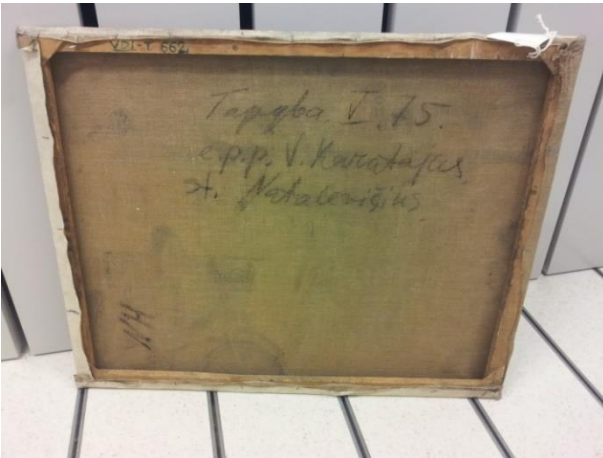 VDI-T 662
Tapyba V. 75.
e.p.p. V. Karatajus
st. Natalevičius